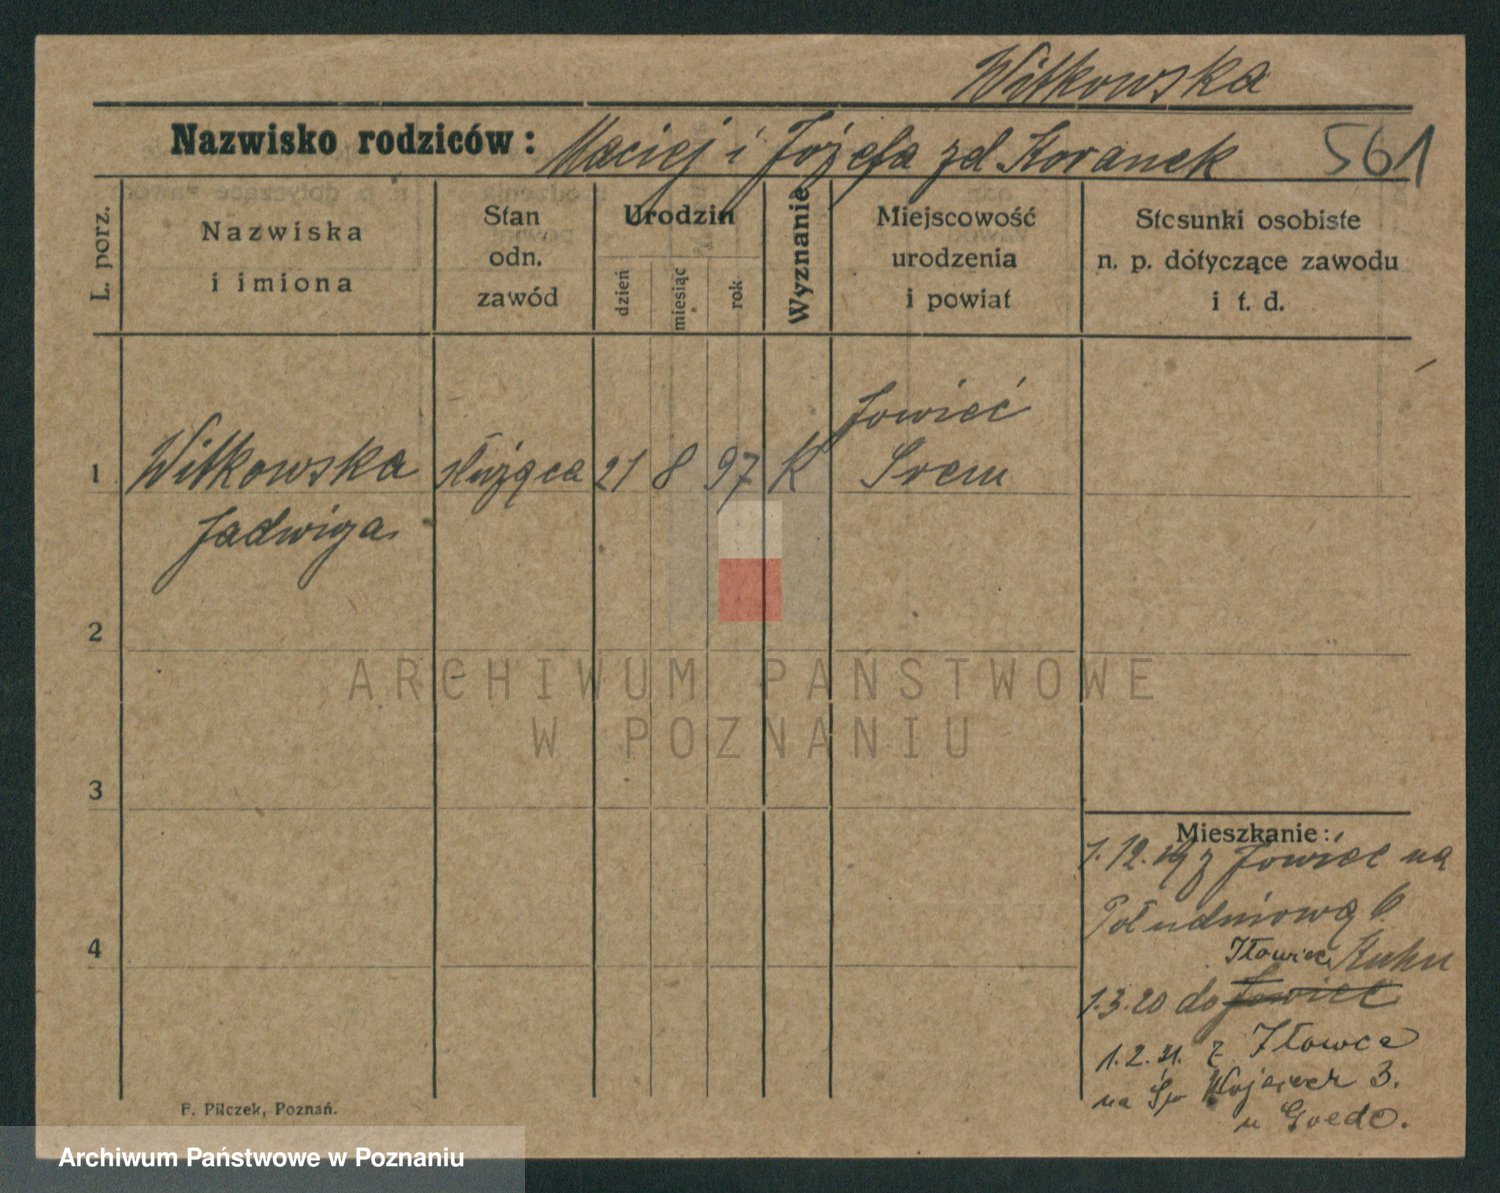 Witkowska
Nazwisko rodziców: Maciej i Józefa zd. Koranek 561
L. porz.
Nazwiska
i imiona
Stan
odn.
zawód
Urodzin
dzień
miesiąc
rok
Wyznanie
Miejscowość
urodzenia
i powiat
Stosunki osobiste
n. p. dotyczące zawodu
i t. d.
Jowieć
1 Witkowska służąca 21 8 97 K Srem
Jadwiga
2
ARCHIWUM PAŃSTWOWE
W POZNANIU
3
Mieszkanie:
1.12.19 z Jowiec na
Południową 6
Iłowiec Kuhn
1.3.20 do Jowiec
1.2.21. z Iłowca
na Św Wojciech 3.
u Goede.
4
F. Pilczek, Poznań.
Archiwum Państwowe w Poznaniu